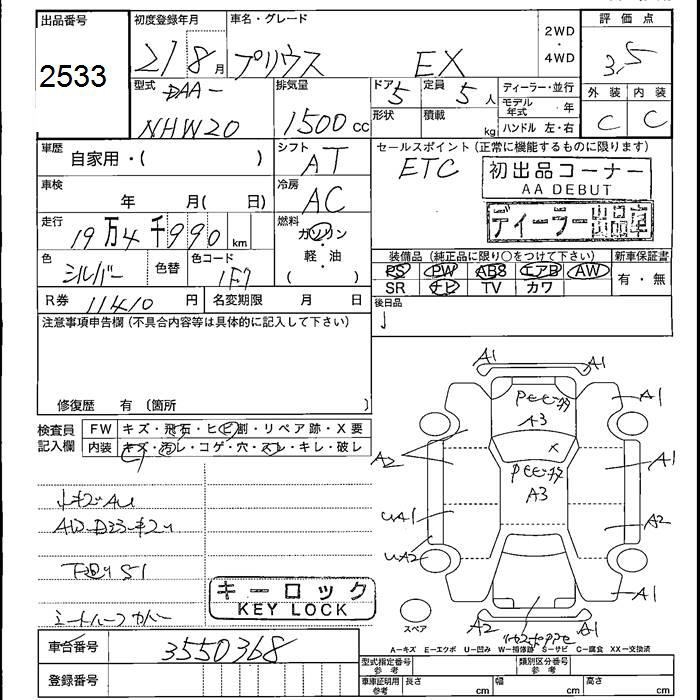 出品番号
2533
初度登録年月
21 8 月
車名・グレード
プリウス EX
2WD
・
4WD
評価点
3.5
型式
DAA-
NHW20
排気量
1500 cc
ドア 5
定員 5 人
形状
積載 kg
ディーラー・並行
モデル年式 年
ハンドル 左・右
外装 内装
C C
車歴
自家用・( )
シフト
AT
セールスポイント (正常に機能するものに限ります)
ETC
初出品コーナー
AA DEBUT
ディーラー出品車
車検
年 月( 日)
冷房
AC
走行
19万4千990 km
燃料
ガソリン
・
軽・油
( )
色
シルバー
色替
色コード
1F7
装備品 (純正品に限り〇をつけて下さい)
新車保証書
PS PW ABS エアB AW
SR ナビ TV カワ
有・無
R券 11410 円
名変期限 月 日
後日品
注意事項申告欄 (不具合内容等は具体的に記入して下さい)
修復歴 有 (箇所 )
検査員記入欄
FW キズ・飛石・ヒビ割・リペア跡・X要
内装 キズ・汚レ・コゲ・穴・スレ・キレ・破レ
下廻りS1
シートルーフカバー
キーロック
KEY LOCK
A1 A1
A1
A3
X
A2
A1
A3
UA1
A2
UA2
A1
A2 A1
スペア
A-キズ E-エクボ U-凹み W-補修跡 S-サビ C-腐食 XX-交換済
車台番号
3550368
登録番号
型式指定番号
参考
類別区分番号
参考
車庫証明用
参考
長さ cm
幅 cm
高さ cm